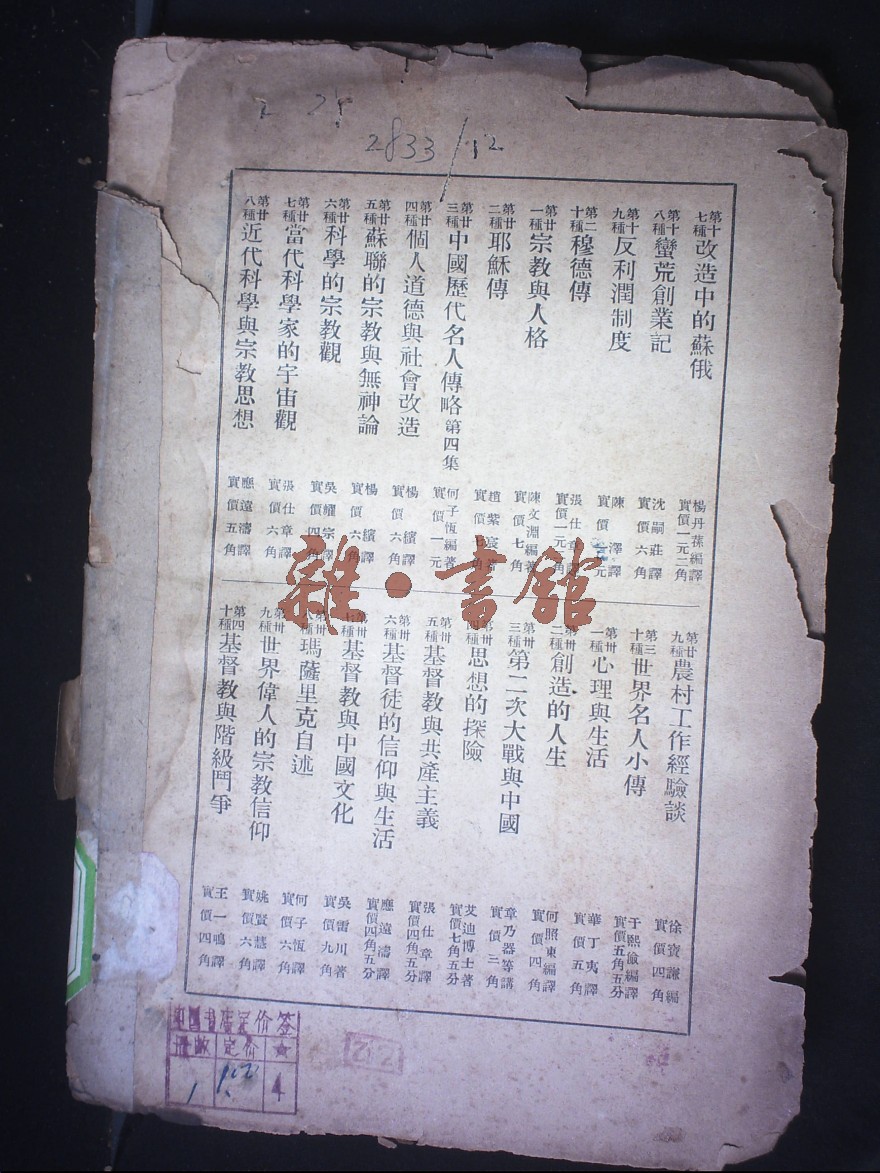 2833/12
第十七種 改造中的蘇俄 楊丹蓀編譯 實價一元二角
第十八種 蠻荒創業記 沈嗣莊譯 實價六角
第十九種 反利潤制度 陳澤譯 實價元
第二十種 穆德傳 張仕章譯 實價一元角
第廿一種 宗教與人格 陳文淵編著 實價七角
第廿二種 耶穌傳 趙紫宸著 實價角
第廿三種 中國歷代名人傳略第四集 何子恆編著 實價一元
第廿四種 個人道德與社會改造 楊繽譯 實價六角
第廿五種 蘇聯的宗教與無神論 楊繽譯 實價六角
第廿六種 科學的宗教觀 吳耀宗譯 實價四角
第廿七種 當代科學家的宇宙觀 張仕章譯 實價六角
第廿八種 近代科學與宗教思想 應遠濤譯 實價五角
第廿九種 農村工作經驗談 徐寶謙編 實價四角
第三十種 世界名人小傳 于熙儉編譯 實價五角五分
第卅一種 心理與生活 華丁夷譯 實價五角
第卅二種 創造的人生 何照東編譯 實價四角
第卅三種 第二次大戰與中國 章乃器等講 實價三角
第卅四種 思想的探險 艾迪博士著 實價七角五分
第卅五種 基督教與共產主義 張仕章譯 實價四角五分
第卅六種 基督徒的信仰與生活 應遠濤譯 實價四角五分
第卅七種 基督教與中國文化 吳雷川著 實價九角
第卅八種 瑪薩里克自述 何子恆譯 實價六角
第卅九種 世界偉人的宗教信仰 姚賢慧譯 實價六角
第四十種 基督教與階級鬥爭 王一鳴譯 實價四角
雜·書館
中国书店定价签
册数 定价 ☆
1 4